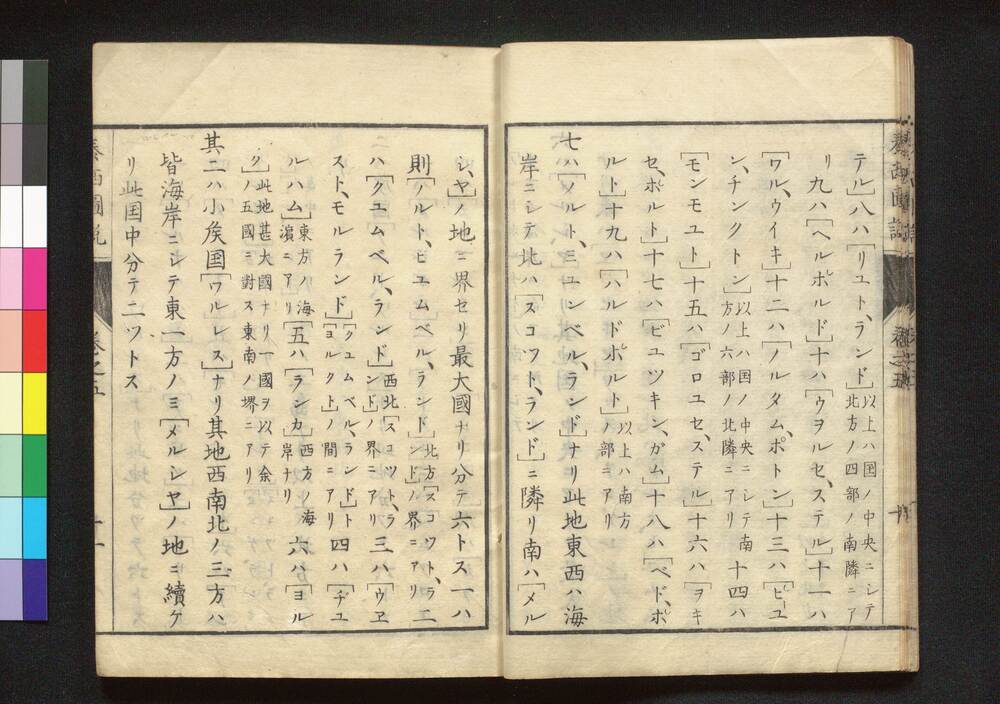 テル]八ハ[リユト、ランド]以上ハ国ノ中央ニシテ北方ノ四部ノ南隣ニア
リ九ハ[ヘルポルド]十ハ[ウヲルセ、ステル]十一ハ
[ワル、ウイキ]十二ハ[ノルタム、ポトン]十三ハ[ビユ
ン、チンクトン]以上ハ国ノ中央ニシテ南方ノ六部ノ北隣ニアリ十四ハ
[モンモユト]十五ハ[ゴロユセ、ステル]十六ハ[ヲキ
セ、ポルト]十七ハ[ビユツキン、ガム]十八ハ[ベド、ポ
ルト]十九ハ[ハルドポルト]以上ハ南方ノ部ニアリ
七ハ[ノルト、ミユンベル、ランド]ナリ此地東西ハ海
岸ニシテ北ハ[スコツト、ランド]ニ隣リ南ハ[メル
シ、ヤ]ノ地ニ界セリ最大國ナリ分テ六トス一ハ
則[ノルト、ビユムベル、ランド]北方[スコツト、ランド]ノ界ニアリ二
ハ[クユムベル、ランド]西北[スコツト、ランド]ノ界ニアリ三ハ[ウヱ
スト、モルランド][クユムベル、ランド]ト[ヨルクト]ノ間ニアリ四ハ[チユ
ルハム]東方ノ海濱ニアリ[五ハ[ランカ]西方ノ海岸ナリ六ハ[ヨル
ク]此地甚大國ナリ一國ヲ以テ余ノ五國ニ對ス東南ノ堺ニアリ
其二ハ小矦国[ワルレス]ナリ其地西南北ノ三方ハ
皆海岸ニシテ東一方ノミ[メルシヤ]ノ地ニ續ケ
リ此国中分テ二ツトス
泰西圖説
卷之五
十一